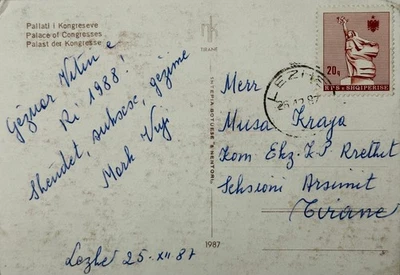 Pallati i Kongreseve
Palace of Congresses
Palast der Kongresse
TIRANË
Gëzuar Vitin e
Ri 1988!
Shendet, suksese, gëzime
Mark Vuji
Lezhë 25-XII-87
1987
20q
RPS e SHQIPERISE
LEZHE
87
Merr
Musa Kraja
Kom Ekz. K.P Rrethit
Seksioni Arsimit
Tirane